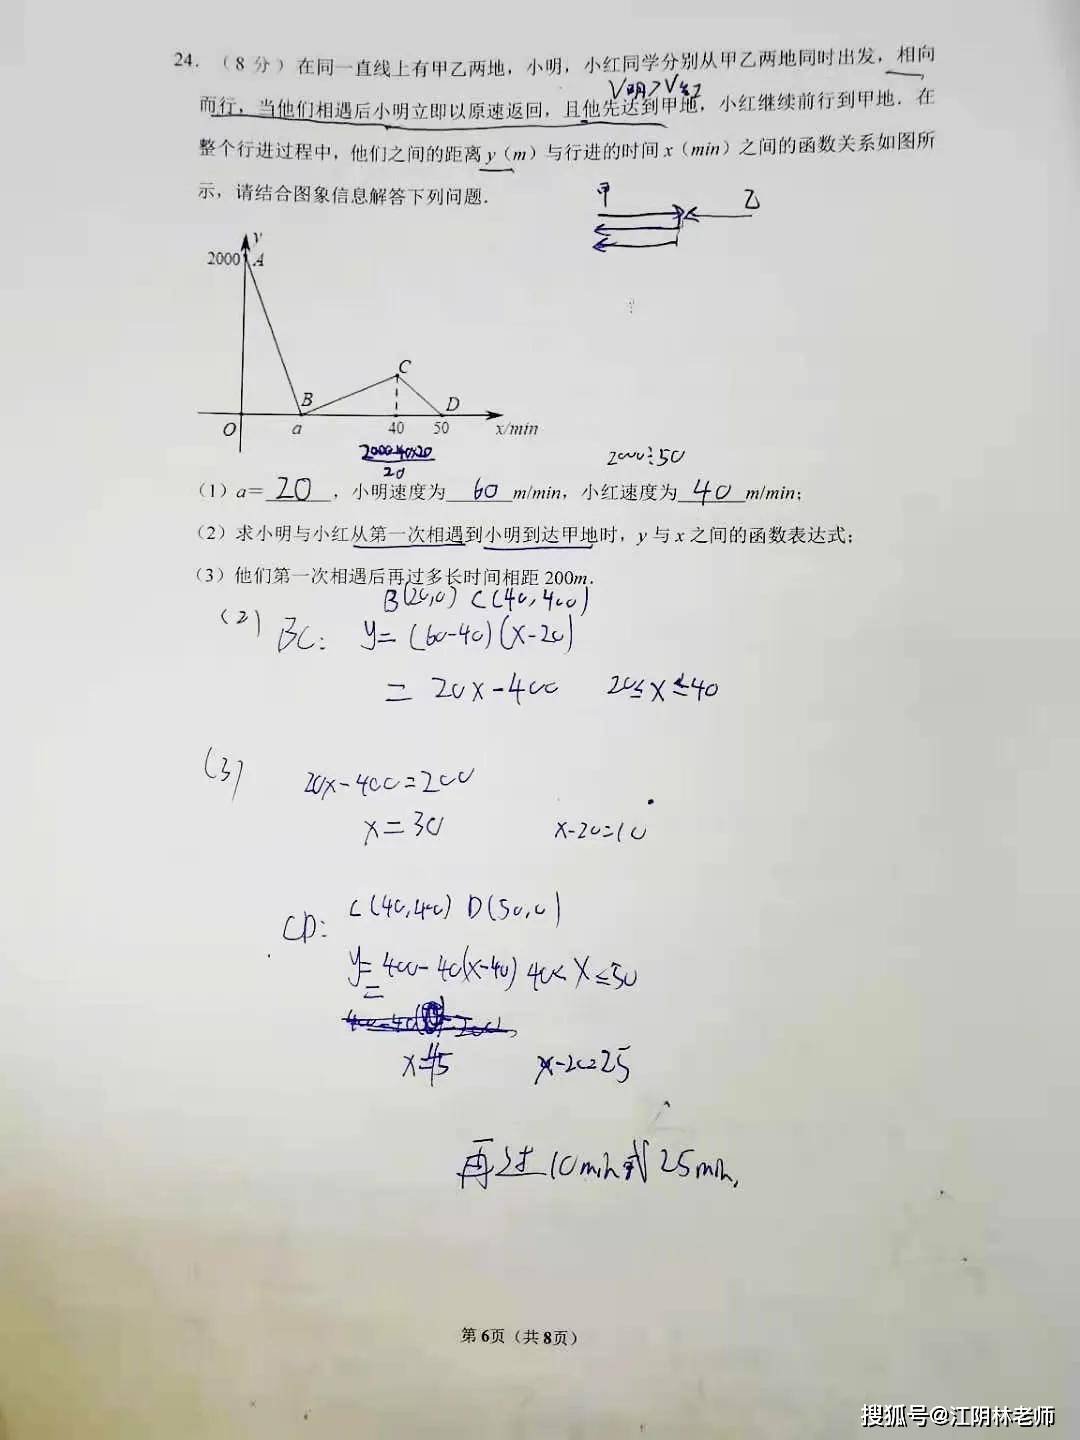 24.（8分）在同一直线上有甲乙两地，小明，小红同学分别从甲乙两地同时出发，相向
V明>V红
而行，当他们相遇后小明立即以原速返回，且他先达到甲地，小红继续前行到甲地．在
整个行进过程中，他们之间的距离 y（m）与行进的时间 x（min）之间的函数关系如图所
示，请结合图象信息解答下列问题．
甲 乙
y
2000 A
C
B D
O a 40 50 x/min
2000-40×20
20
2000÷50
（1）a＝20，小明速度为60 m/min，小红速度为40 m/min；
（2）求小明与小红从第一次相遇到小明到达甲地时，y 与 x 之间的函数表达式；
（3）他们第一次相遇后再过多长时间相距 200m．
B(20,0) C(40,400)
(2) BC: y=(60-40)(x-20)
=20x-400 20≤x≤40
(3) 20x-400=200
x=30 x-20=10
C(40,400) D(50,0)
CD:
y=400-40(x-40) 40<x≤50
=
x=45 x-20=25
再过10min或25min.
第 6页（共 8页）
搜狐号@江阴林老师